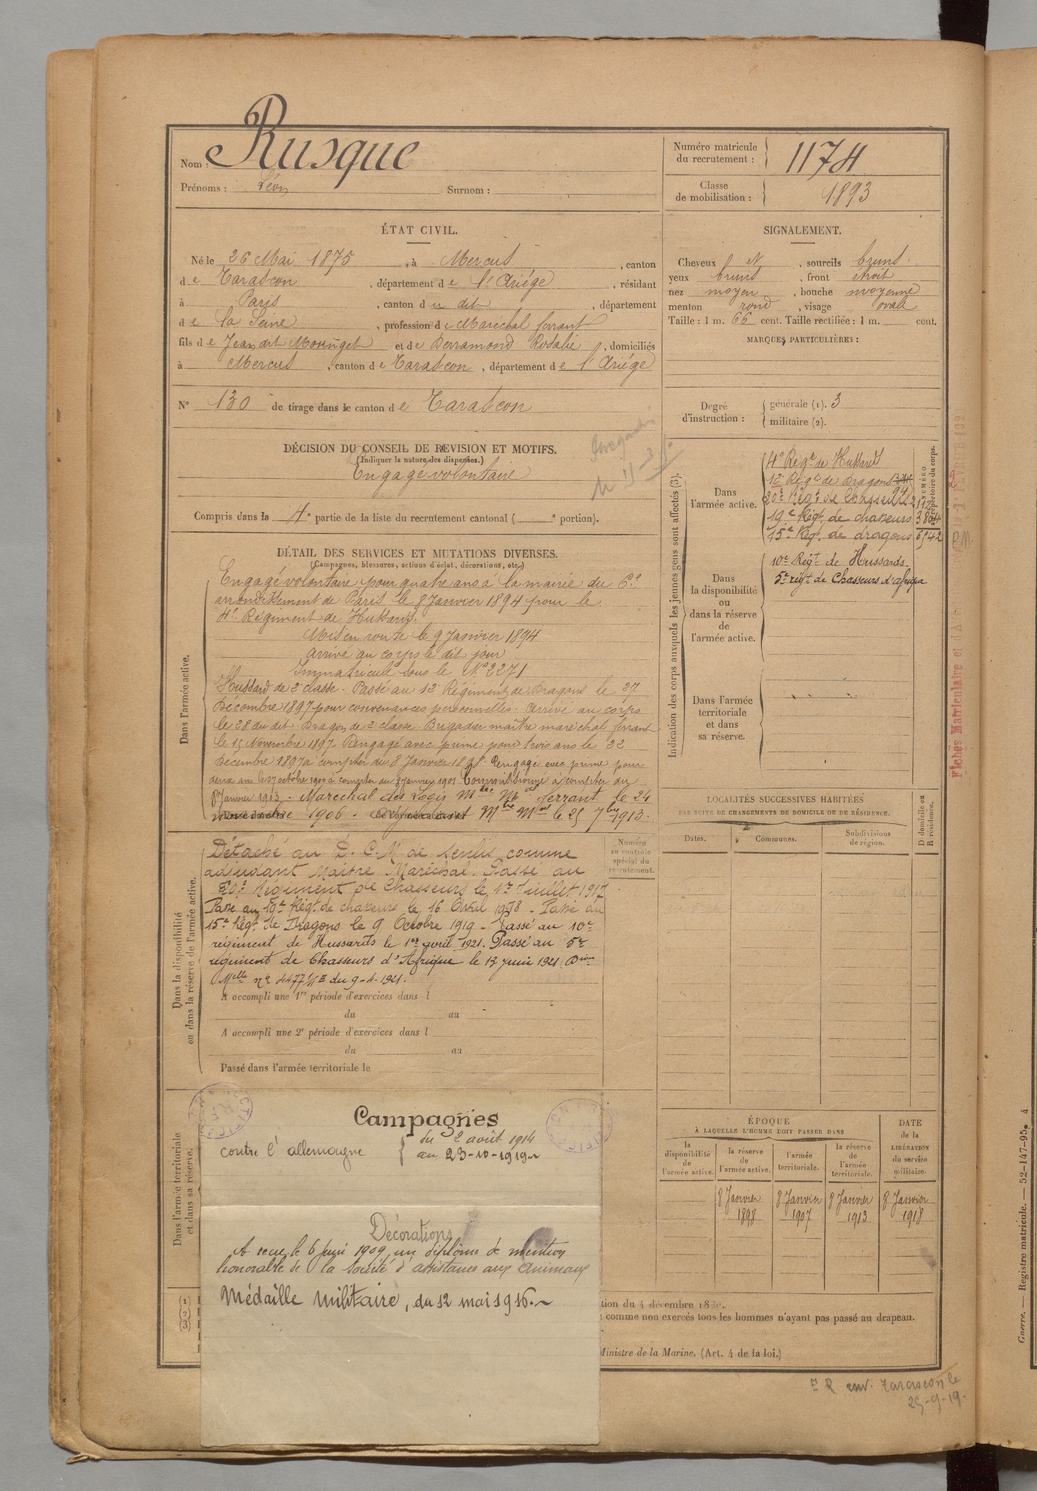 Nom : Rusque
Prénoms : Léon Surnom :
Numéro matricule
du recrutement : 1174
Classe
de mobilisation : 1893
ÉTAT CIVIL.
Né le 26 Mai 1875, à Mercus, canton
de Tarascon, département de l'Ariège, résidant
à Paris, canton du dit, département
de la Seine, profession de Maréchal ferrant
fils de Jean et de Berramond Rosalie, domiciliés
à Mercus, canton de Tarascon, département de l'Ariège
N° 130 de tirage dans le canton de Tarascon
SIGNALEMENT.
Cheveux et, sourcils bruns.
yeux bruns, front étroit
nez moyen, bouche moyenne
menton rond, visage ovale
Taille : 1 m. 66 cent. Taille rectifiée : 1 m. cent.
MARQUES PARTICULIÈRES :
Degré
d'instruction :
générale (1). 3
militaire (2).
DÉCISION DU CONSEIL DE REVISION ET MOTIFS.
(Indiquer la nature des dispenses.)
Engagé volontaire
Compris dans la 4e partie de la liste du recrutement cantonal ( e portion).
DÉTAIL DES SERVICES ET MUTATIONS DIVERSES.
(Campagnes, blessures, actions d'éclat, décorations, etc.)
Dans l'armée active.
Engagé volontaire pour quatre ans à la mairie du 6e
arrondissement de Paris le 8 Janvier 1894 pour le
4e Régiment de Hussards.
Mis en route le 9 Janvier 1894
arrivé au corps le dit jour
Immatriculé sous le N° 2271
Hussard de 2e classe. Passé au 12e Régiment de Dragons le 27
Décembre 1897 pour convenances personnelles. Arrivé au corps
le 28 du dit. Dragon de 2e classe. Brigadier maître maréchal ferrant
le 15 Novembre 1897. Rengagé avec prime pour trois ans le 22
Décembre 1897 à compter du 8 Janvier 1898. Rengagé avec prime pour
deux ans le 27 octobre 1900 à compter du 8 Janvier 1901. Commissionné à compter du
8 Janvier 1913. Maréchal des Logis Mtre Mal ferrant le 24
1906. Mtre Mal le 25 7bre 1913.
Dans la disponibilité
ou dans la réserve de l'armée active.
Détaché au D. C. M de Senlis comme
adjudant Maître Maréchal. Passé au
20e Régiment de Chasseurs le 1er Juillet 1917
Passé au 19e Régt de chasseurs le 16 1918. Passé au
15e Régt de Dragons le 9 Octobre 1919. Passé au 10e
régiment de Hussards le 1er avril 1921. Passé au 5e
régiment de Chasseurs d'Afrique le 13 juin 1921. Don
Mlle n° du 9-4-1921.
A accompli une 1re période d'exercices dans l
du au
A accompli une 2e période d'exercices dans l
du au
Passé dans l'armée territoriale le
Numéro
au contrôle
spécial du
recrutement.
Dans l'armée territoriale
et dans sa réserve.
Campagnes
contre l'allemagne du 2 août 1914
au 23-10-1919
Décorations
A reçu le 6 juin 1909 un diplôme de mention
honorable de la Société d'assistance aux animaux
Médaille militaire, du 12 mai 1916.
Indication des corps auxquels les jeunes gens sont affectés (3).
Dans
l'armée active.
4e Régt de Hussards
12e Régt de Dragons
20e Régt de Chasseurs
19e Régt de chasseurs
15e Régt de dragons
NUMÉRO
au répertoire du corps.
Dans
la disponibilité
ou
dans la réserve
de
l'armée active.
10e Régt de Hussards.
5e régt de Chasseurs d'afrique
Dans l'armée
territoriale
et dans
sa réserve.
LOCALITÉS SUCCESSIVES HABITÉES
PAR SUITE DE CHANGEMENTS DE DOMICILE OU DE RÉSIDENCE.
Dates.
Communes.
Subdivisions
de région.
D domicile ou
R résidence.
ÉPOQUE
À LAQUELLE L'HOMME DOIT PASSER DANS
la
disponibilité
de
l'armée active.
la réserve
de
l'armée active.
l'armée
territoriale.
la réserve
de
l'armée
territoriale.
DATE
de la
LIBÉRATION
du service
militaire.
8 Janvier
1898
8 Janvier
1907
8 Janvier
1913
8 Janvier
1918
tion du 4 décembre 18
comme non exercés tous les hommes n'ayant pas passé au drapeau.
Ministre de la Marine. (Art. 4 de la loi.)
env. Tarascon le
25-9-19.
Guerre. — Registre matricule. — 52-147-95. 4
Fiches Matriculaire et d'A